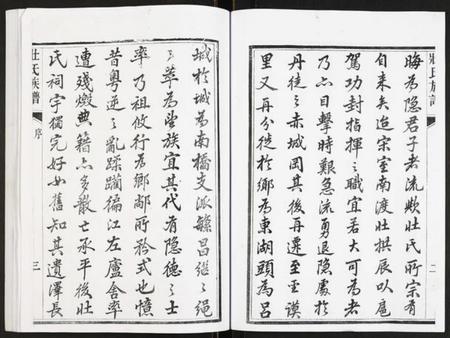 晦為隱君子者流歟莊氏所宗有
自來矣迨宋室南渡莊拱辰以扈
駕功封指揮之職宜若大可為者
乃亡目擊時艱急流勇退隱處於
丹徒之赤城岡其後再遷至
里又再分徙於鄉為東湖頭為呂
莊氏族譜
二
莊氏族譜
序
三
城於城為南橋支派繁昌繼繼繩
之萃為望族宜其代有隱德之士
率乃祖攸行為鄉鄰所矜式也憶
昔粵逆之亂蹂躪徧江左廬舍率
遭殘燬典籍亦多散亡承平後莊
氏祠宇獨完好如舊知其遺澤長